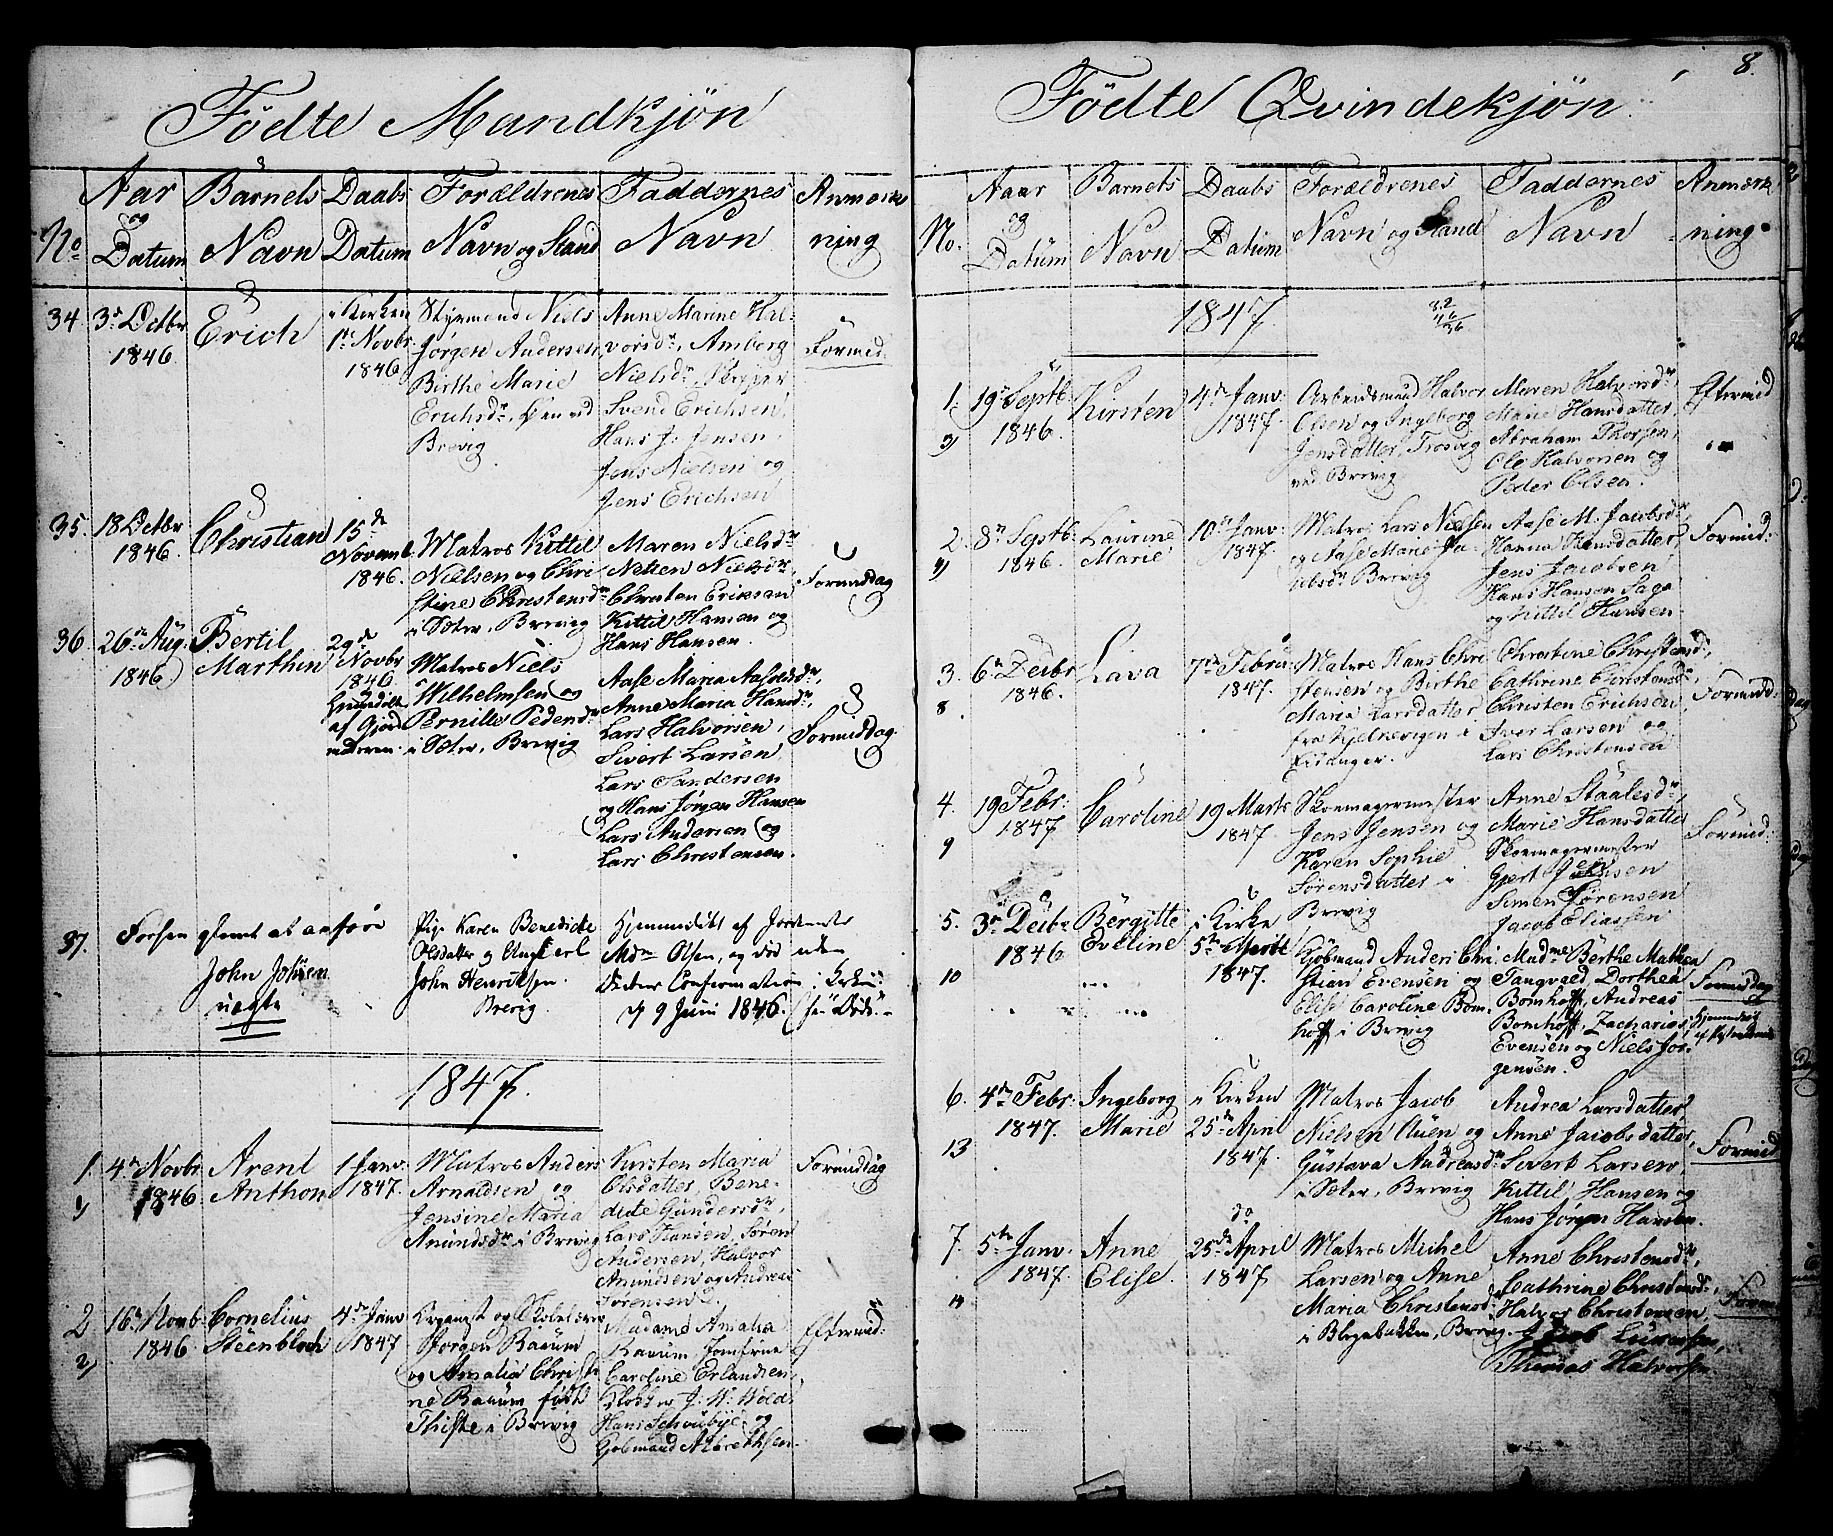 Födte Mandkjön
No
Aar
og
Datum
Barnets
Navn
Daabs
Datum
Forældrenes
Navn og Stand
Faddernes
Navn
Anmærk
ning
34
3d Octbr
1846.
Erich
i Kirken
1ste Novbr
1846
Styrmand Niels
Jørgen Andersen,
Birthe Marie
Erichsdr,
Brevig
Anne Marine Hal-
vorsdr, Amborg
Nielsdr, Skipper
Svend Erichsen,
Hans J. Jensen,
Jens Nielsen og
Jens Erichsen
Formid:
35.
18 Octbr
1846.
Christian
15de
Novemb.
1846.
Matros Kittil
Nielsen og Chri
stine Christensdr
i Sæter, Brevig
Maren Nielsdr
Nielsdr
Christen Eriksen
Kittil Hansen og
Hans Hansen.
Formiddag
36
26de Aug.
1846
Bertil
Marthin
29de
Novbr
1846
af Gjord
moderen.
Matros Niels
Wilhelmsen og
Pernille Pedersdr
i Sæter, Brevig
Aase Maria
Anne Maria Hansdr,
Lars Halvorsen,
Sivert Larsen,
Lars Sandersen
og Hans Jørgen Hansen
Lars Andersen og
Lars Christensen.
Formiddag.
37.
glemt at anføre
John Johsen
uægte
Pige Karen Benedicte
Olsdatter og Ungkarl
John Henriksen.
Brevig.
Hjemmedøbt af Jorde
Mdm Olsen, og død uden
Confirmation i Kirken
d 9 Juni 1846.
1847.
1.
1)
4de Novbr
1846
Arent
Anthon
1 Janv.
1847.
Matros Anders
Arnaldsen og
Jensine Maria
Amundsdr i Brevig
Kirsten Maria
Olsdatter, Bene-
dicte Gundersdr
Lars Hansen, Søren
Andersen, Halvor
Amundsen og Andreas
Sørensen.
Formiddag
2
2)
16de Novb
1846
Cornelius
Steenbloch
4de Janv
1847
Organist og Skolelærer
Jørgen Barum
og Amalia Christi
ne Barum født
Thiste i Brevig
Madame Amalia
Barum, Jomfrue
Caroline Erlandsen,
Klokker J. W. Wold,
Hans Schoubye og
Kjøbmand Albrethsen.
Eftermid:
8.
Födte Qvindekjön.
No.
Aaar
og
Datum
Barnets
Navn
Daabs
Datum
Forældrenes
Navn og Stand
Faddernes
Navn
Anmærk
ning.
1847.
1.
3)
19de Septb.
1846.
Kirsten
4de Janv.
1847.
Arbeidsmand Halvor
Olsen og Ingeborg
Jensdatter, Trosvig
ved Brevig
Maren Halvorsdr,
Marie Hansdatter,
Abraham Thorsen,
Ole Halvorsen og
Peder Olsen.
Eftermid
2.
8de Septb.
1846.
Laurine
Marie
10de Janv.
1847.
Matros Lars Nielsen
og Aase Marie Ja-
cobsdr Brevig
Aase M. Jacobsdr
Hanna Hansdatter,
Jens Jacobsen
Hans Hansen
og Kittil Hansen.
Formid:
3.
8
6de Decbr
1846.
Lava
7de Febru
1847.
Matros Hans Chri
stensen og Birthe
Maria Larsdatter
fra Kjelnevigen i
Eidanger.
Christine Christensdr,
Cathrine Christensdr,
Christen Erichsen,
Iver Larsen og
Lars Christensen
Formid:
4.
9
19 Febr:
1847.
Caroline
19 Marts
1847.
Skomagermester
Jens Jensen og
Karen Sophie
Sørensdatter i
Brevig
Anne Staalesdr,
Marie Hansdatter
Skomagermester
Gjert Jensen
Simen Sørensen
Jacob Eliassen
Formid:
5.
10
3de Decbr
1846
Bergitte
Eveline
i Kirke
5te April
1847.
Kjøbmand Anders Chri
stian Evensen og
Elise Caroline Bom
hoff i Brevig
Madme Berthe Mathea
Tangvald, Dorthea
Bomhoff, Andreas
Bomhoff, Zacharias
Evensen og Niels Jør-
gensen.
Formiddag
Hjemmedøbt
6.
13
4de Febr:
1847.
Ingeborg
Marie
i Kirken
25de April
1847.
Matros Jacob
Nielsen Auen og
Gustava Andreasdr
i Sæter, Brevig
Andrea Larsdatter
Anne Jacobsdatter,
Sivert Larsen,
Kittil Hansen og
Hans Jørgen Hansen.
Formid
7.
14
5te Janv.
1847.
Anne
Elise.
do
25de April
1847.
Matros Michel
Larsen og Anne
Maria Christensdr
i Blegebakken, Brevig
Anne Christensdr,
Cathrine Christensdr,
Halvor Christensen,
Jacob
Thomas Halvorsen.
Formid